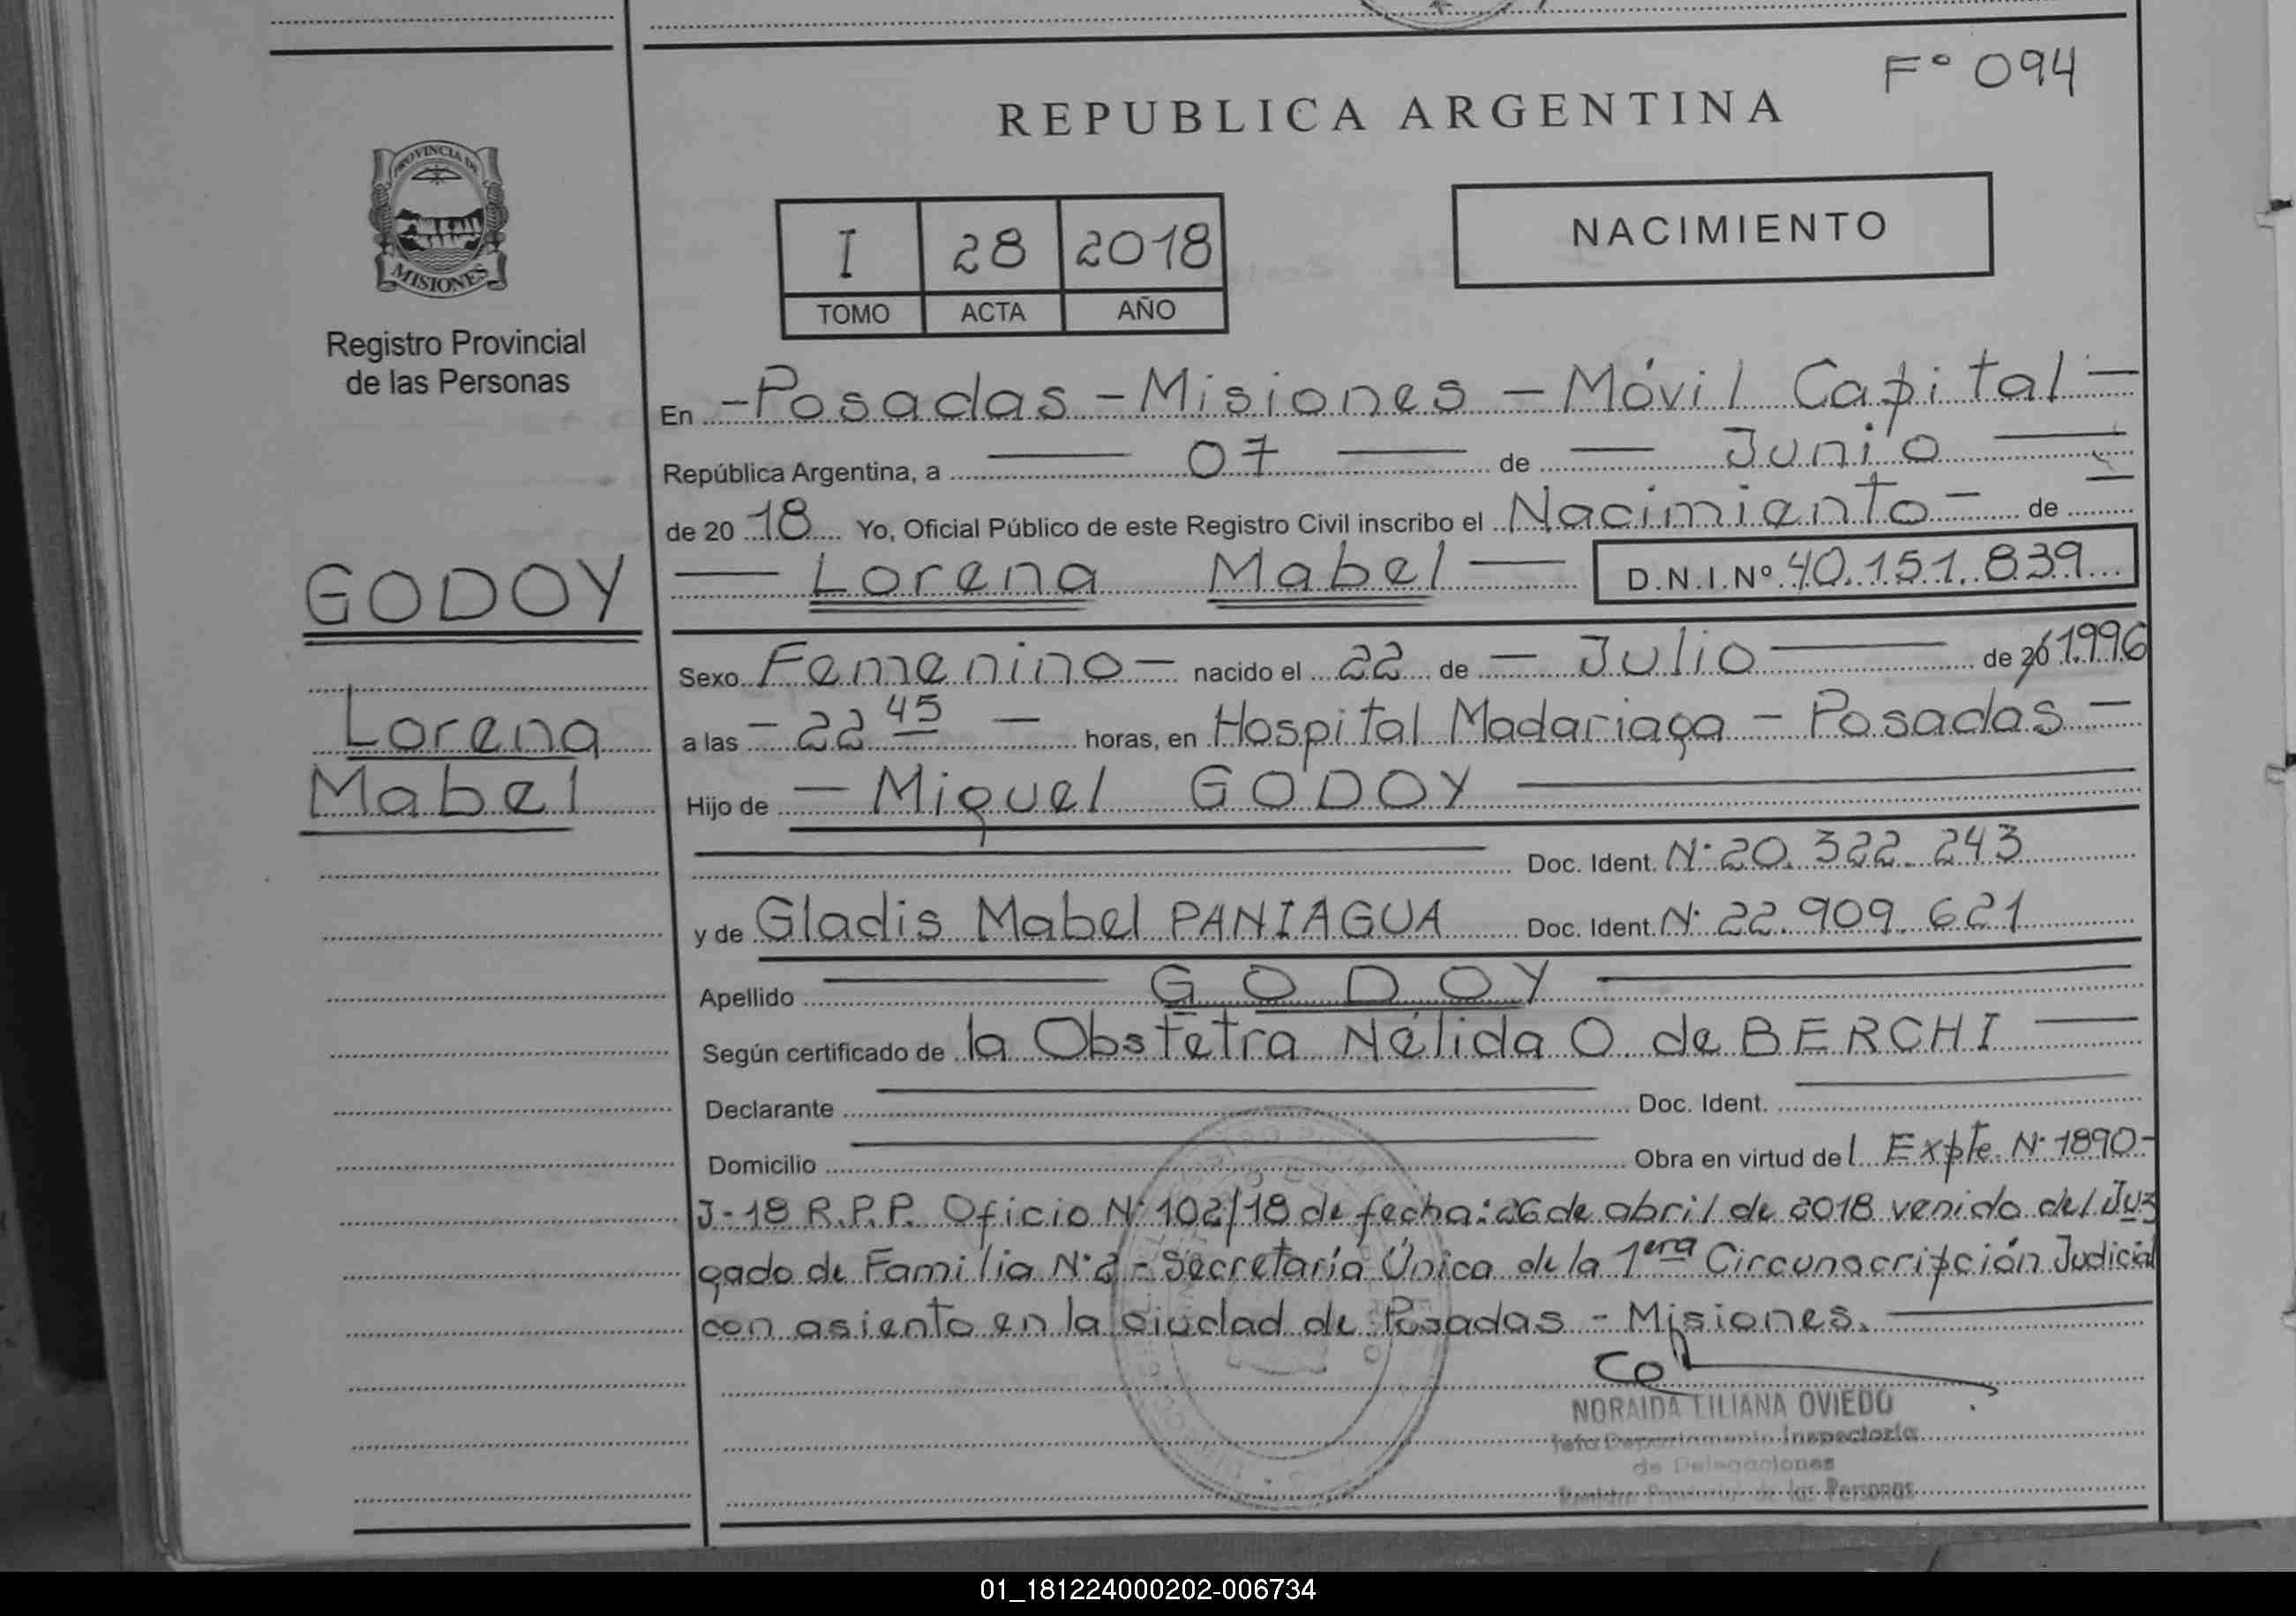 F° 094
REPUBLICA ARGENTINA
PROVINCIA DE
MISIONES
Registro Provincial
de las Personas
I 28 2018
TOMO ACTA AÑO
NACIMIENTO
En - Posadas - Misiones - Móvil Capital -
República Argentina, a 07 de Junio
de 20 18 Yo, Oficial Público de este Registro Civil inscribo el Nacimiento - de
GODOY
Lorena Mabel D.N.I.Nº 40.151.839
Sexo Femenino - nacido el 22 de - Julio de 20 1996
Lorena
Mabel
a las - 22 45 - horas, en Hospital Madariaga - Posadas -
Hijo de - Miguel GODOY
Doc. Ident. N° 20.322.243
y de Gladis Mabel PANIAGUA Doc. Ident. N° 22.909.621
Apellido GODOY
Según certificado de la Obstetra Nélida O. de BERCHI
Declarante Doc. Ident.
Domicilio Obra en virtud de l Expte. N° 1890-
J-18 R.P.P. Oficio N° 102/18 de fecha: 26 de abril de 2018 venido del Juz
gado de Familia N° 2 - Secretaría Única de la 1era Circunscripción Judicial
con asiento en la ciudad de Posadas - Misiones.
NORAIDA LILIANA OVIEDO
Jefa Departamento Inspectoría
de Delegaciones
Registro Provincial de las Personas
01_181224000202-006734